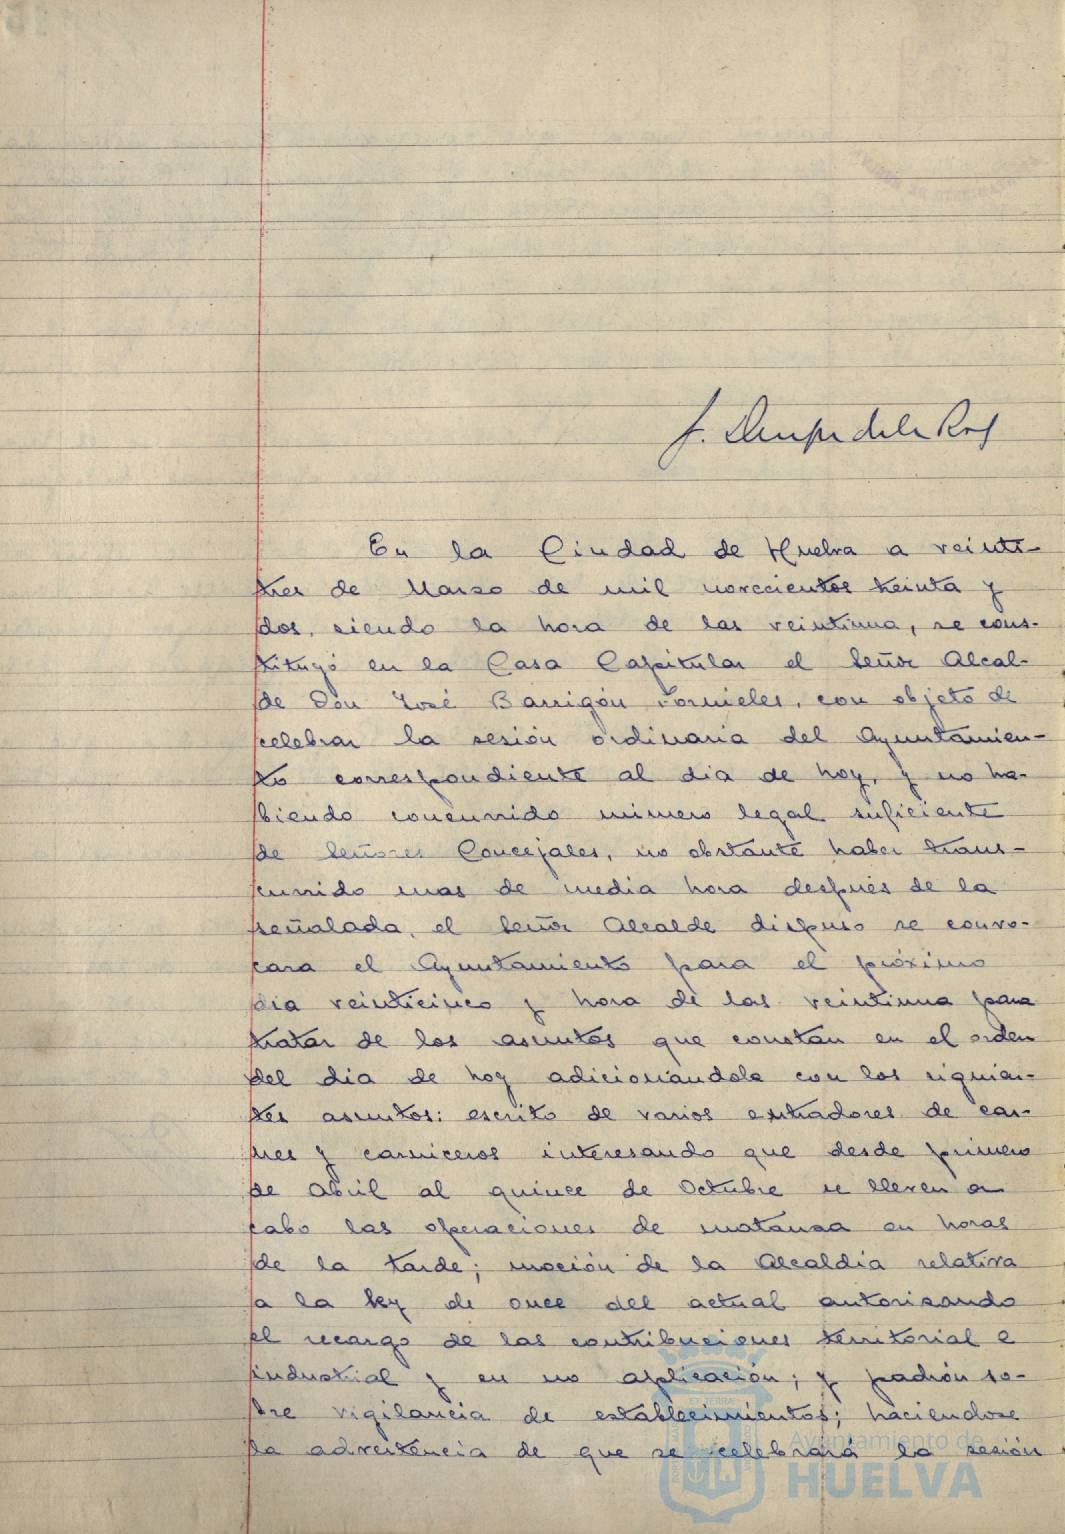 En la Ciudad de Huelva a veinti-
tres de Marzo de mil novecientos treinta y
dos, siendo la hora de las veintiuna, se cons-
tituyó en la Casa Capitular el Señor Alcal-
de Don José Barrigón Fornieles, con objeto de
celebrar la sesión ordinaria del Ayuntamien-
to correspondiente al dia de hoy, y no ha-
biendo concurrido número legal suficiente
de Señores Concejales, no obstante haber trans-
currido mas de media hora después de la
señalada, el Señor Alcalde dispuso se convo-
cara el Ayuntamiento para el próximo
dia veinticinco y hora de las veintiuna para
tratar de los asuntos que constan en el orden
del dia de hoy adicionándola con los siguien-
tes asuntos: escrito de varios entradores de car-
nes y carniceros interesando que desde primero
de Abril al quince de Octubre se lleven a
cabo las operaciones de matanza en horas
de la tarde; moción de la Alcaldía relativa
a la ley de once del actual autorizando
el recargo de las contribuciones territorial e
industrial y en no aplicación; y padrón so-
bre vigilancia de establecimientos; haciendose
la advertencia de que se celebrará la sesión
Ayuntamiento de
HUELVA